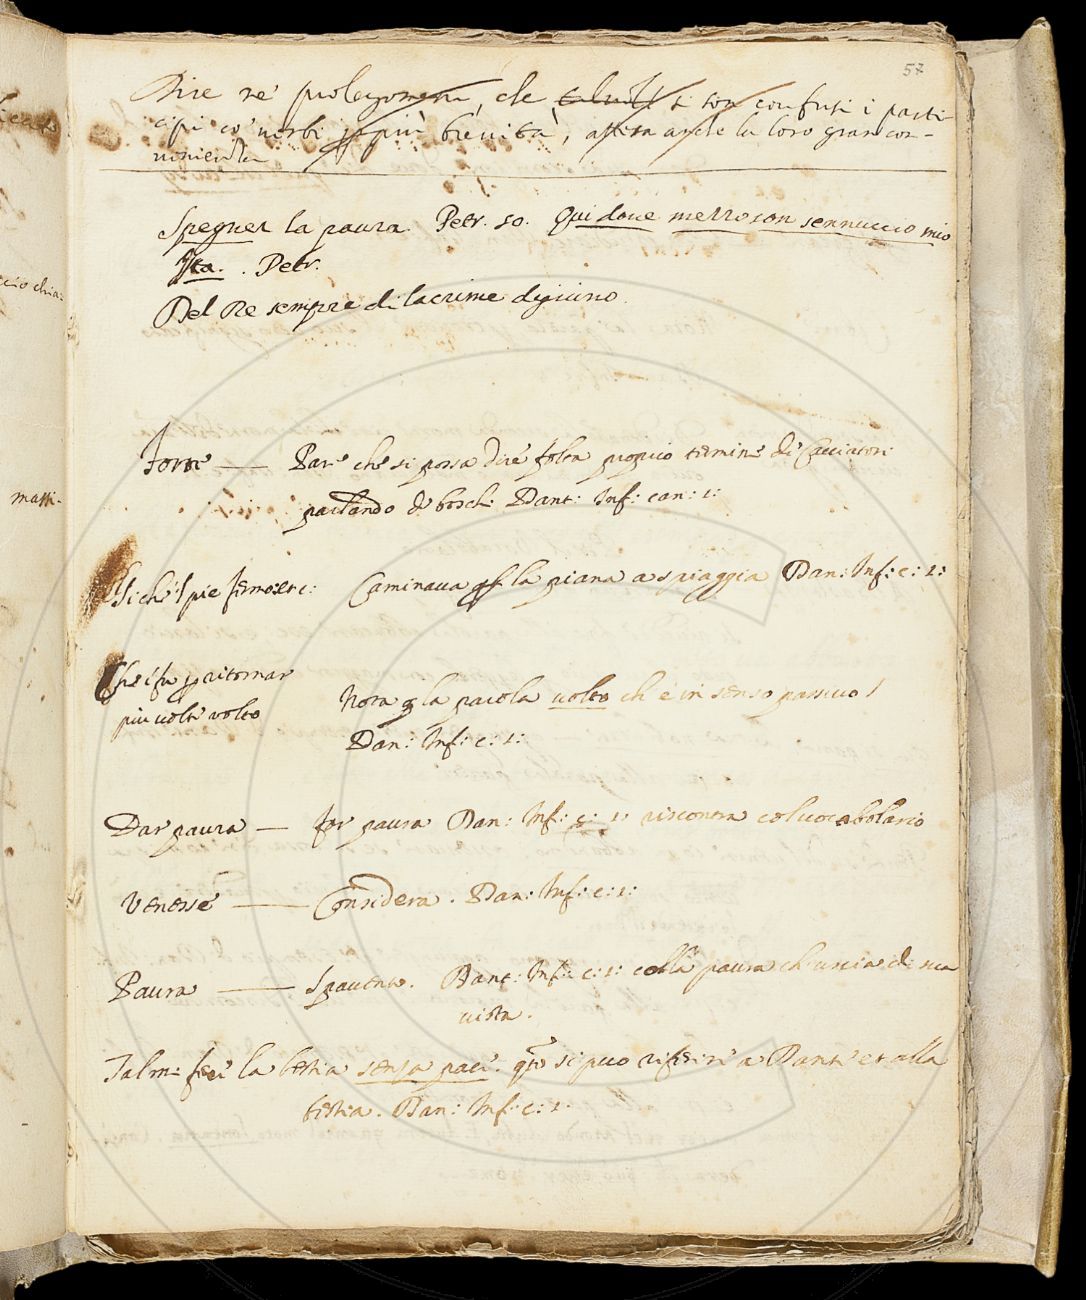 57
Dire ne' prolegomeni, che si son confusi i parti-
cipi co' verbi p più brevità, attesa anche la loro gran con-
venienza
Spegner la paura. Petr. so. Qui dove mezzo son sennuccio mio
Petr.
Del Re sempre di lacrime digiuno.
Forte — Par' che si possa dire folta propio termine de' Cacciatori
parlando de boschi Dant: Inf: can: 1:
Sichè 'l piè fermo etc: Caminava p la piana a spiaggia Dan: Inf: c: 1:
Che i fu p ritornar
più volte volto
Nota q la parola volto ch' è in senso passivo /
Dan: Inf: c: 1:
Dar paura — far paura Dan: Inf: c: 1: riscontra col vocabolario
Venesse — Considera. Dan: Inf: c: 1:
Paura — Spavento. Dant: Inf: c: 1: colla paura ch' uscia di sua
vista.
Talmi fece la bestia senza pace. si può riferire a Dante et alla
bestia. Dan: Inf: c: 1.
massi-